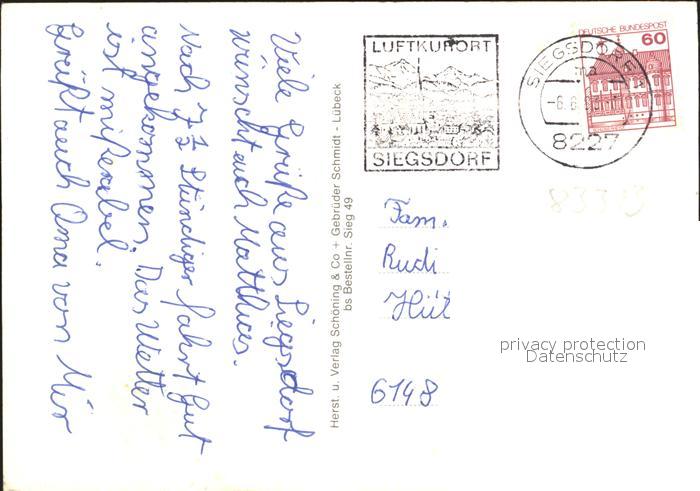 Viele Grüße aus Siegsdorf
wünscht euch Matthias.
Nach 7½ Stündiger fahrt gut
angekommen. Das Wetter
ist mißerabel.
Grüßt auch Oma von Mir
Herst. u. Verlag Schöning & Co + Gebrüder Schmidt - Lübeck
bs Bestellnr. Sieg 49
LUFTKURORT
SIEGSDORF
SIEGSDORF
ma
8227
DEUTSCHE BUNDESPOST
60
83313
Fam.
Rudi
6148
privacy protection
Datenschutz